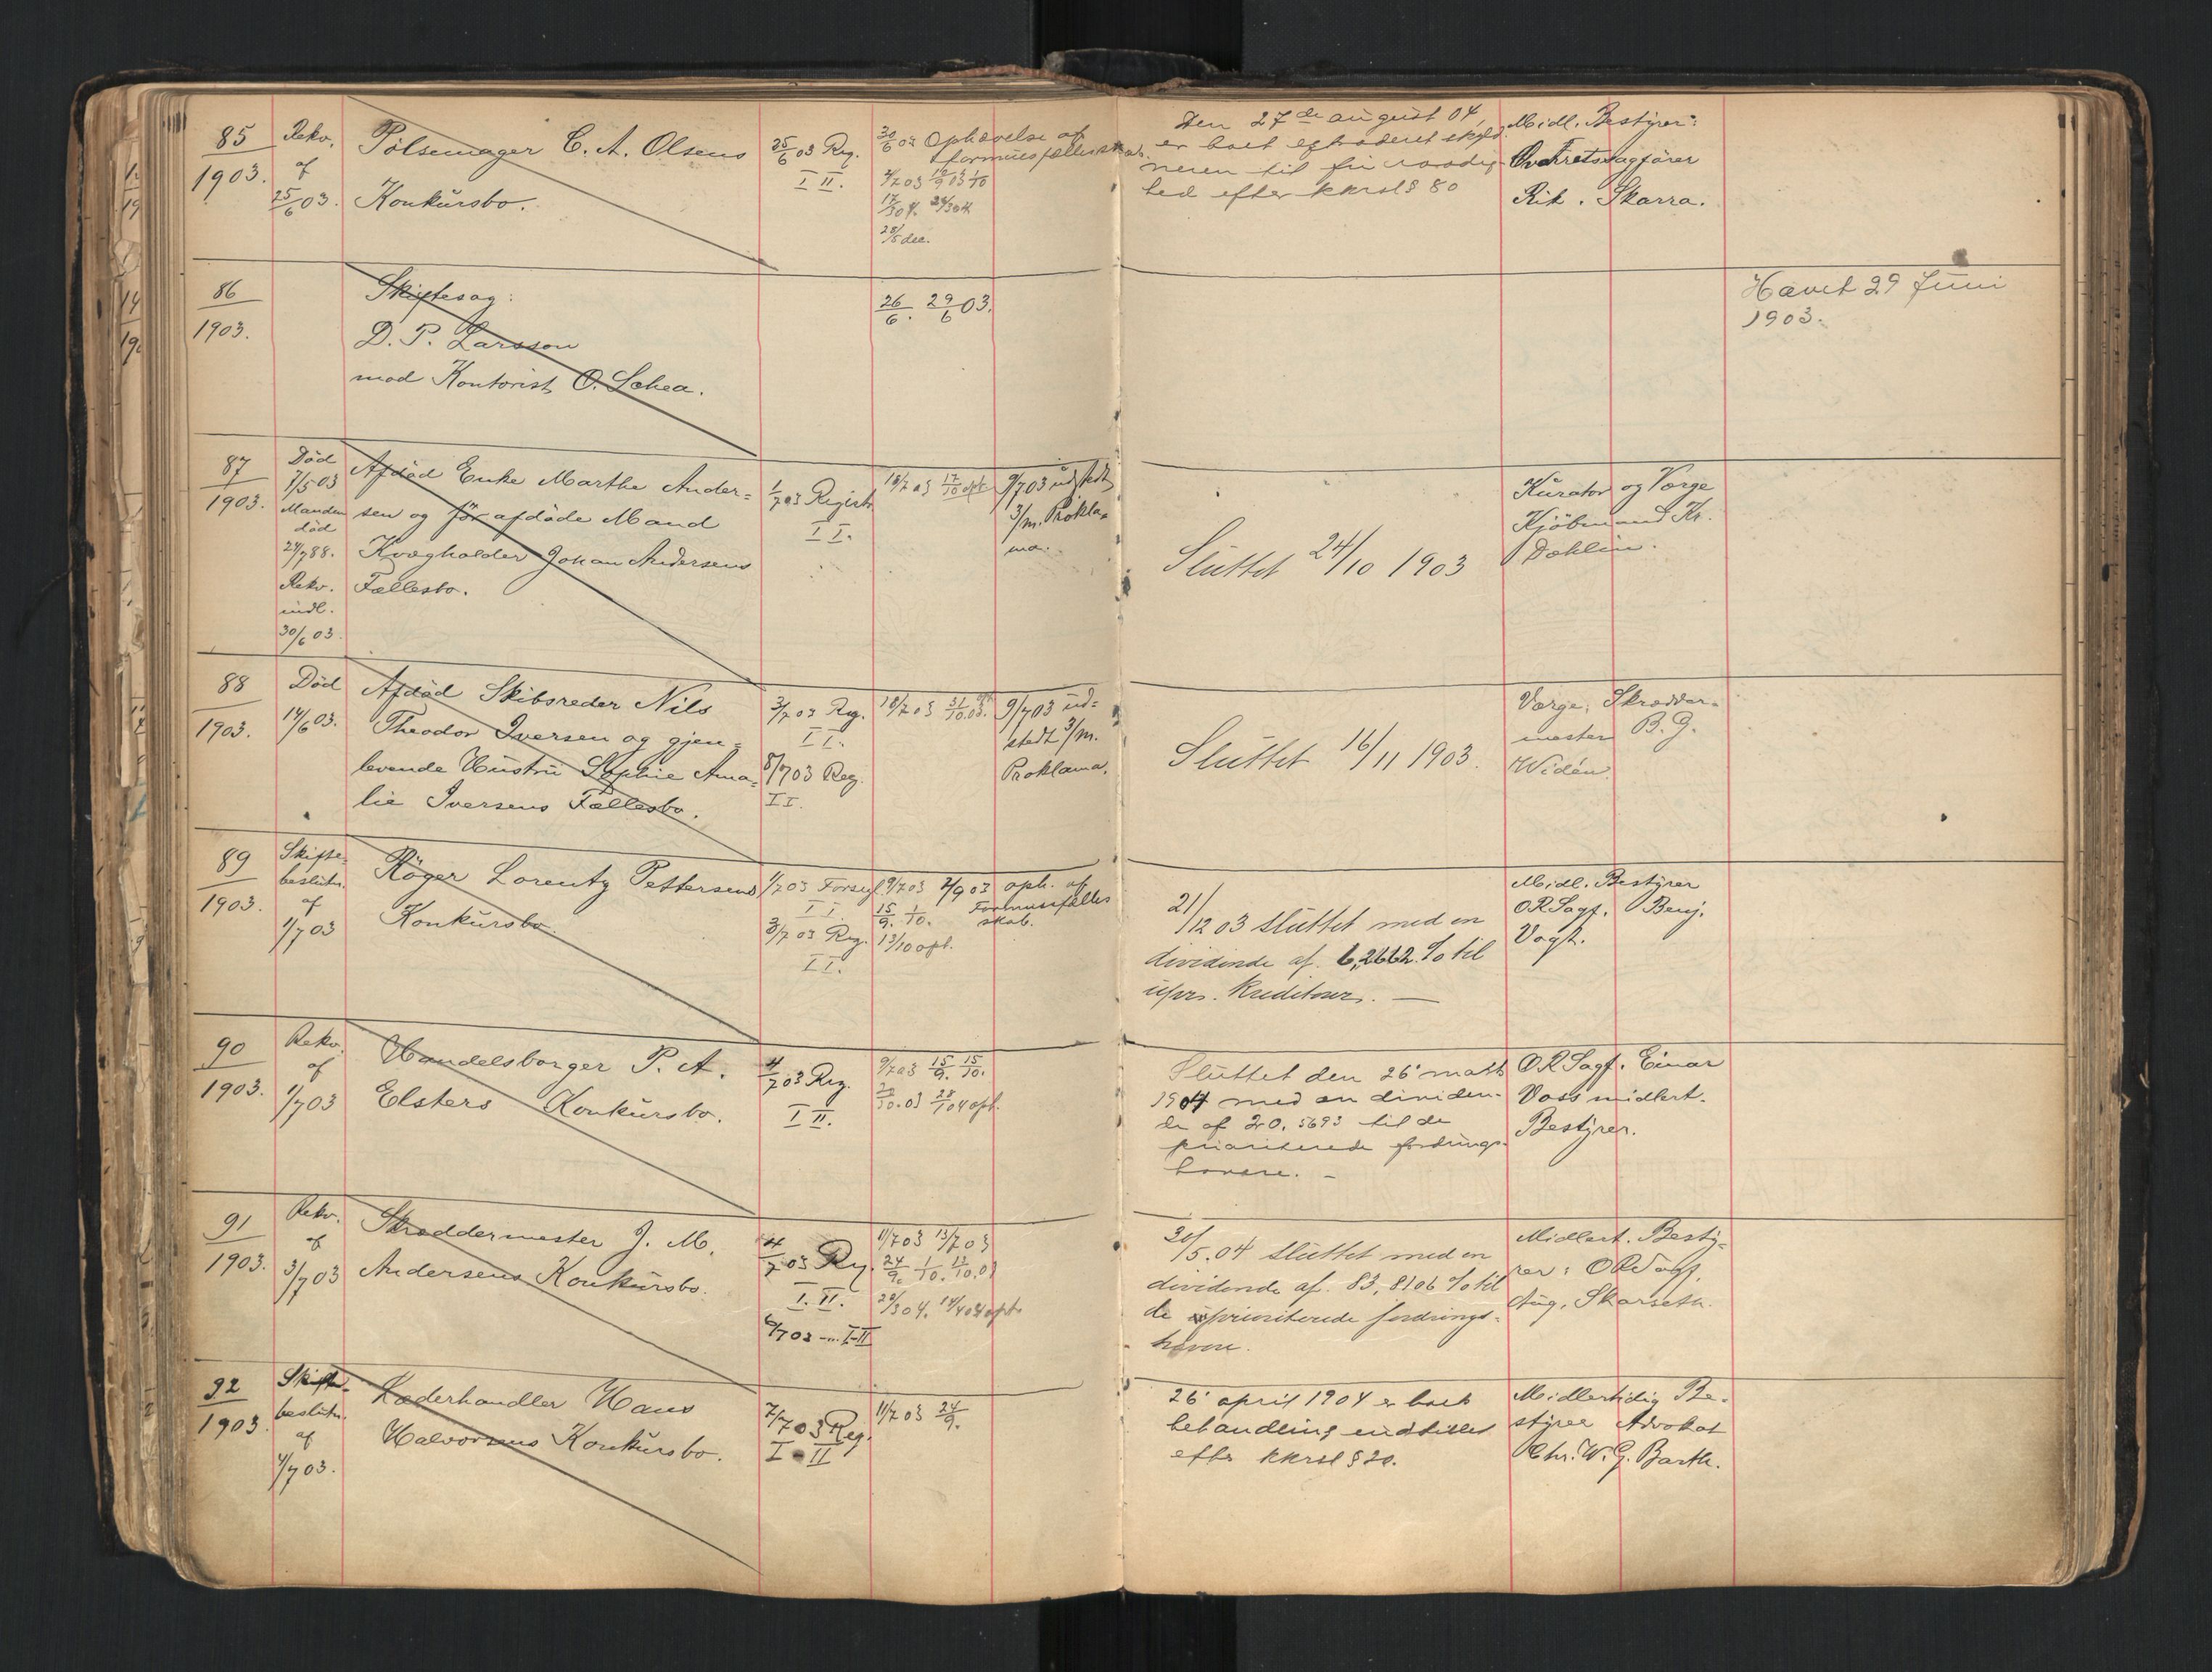 85
1903.
Rekv.
af
25/6 03.
Pölsemager C. A. Olsens
Konkursbo.
25/6 03 Reg.
I II.
30/6 03 Ophævelse af
formuesfællesskab.
28/5 dec.
Den 27de august 04
er boet extraderet skyld
neren til fri raadig
hed efter kkrsl § 80
Midl. Bestyrer:
Overretssagförer
Rik. Skarra.
86
1903.
Skiftesag:
D. P. Larsson
mod Kontorist O. Schea.
26/6. 29/6 03.
Hævet 29 Juni
1903.
87
1903.
Död
7/5 03
Manden
död
24/7 88.
Rekv.
indl.
30/6 03.
Afdöd Enke Marthe Ander=
sen og för afdöde Mand
Kvægholder Johan Andersens
Fællesbo.
1/7 03 Registr.
I I.
18/7 03 17/10 opt.
9/7 03 udstedt
3/m. Prokla=
ma.
Sluttet 24/10 1903
Kurator og Værge
Kjöbmand Kr.
Dahlin.
88
1903.
Död
14/6 03.
Afdöd Skibsreder Nils
Theodor Iversen og gjen=
levende Hustru Sophie Ama=
lie Iversens Fællesbo.
3/7 03 Reg.
I I.
8/7 03 Reg.
I I.
18/7 03 31/10 03.
9/7 03 ud=
stedt 3/m.
Proklama.
Sluttet 16/11 1903.
Værge: Skrædder=
mester B. G.
Widén.
89
1903.
Skifte=
beslutn.
af
1/7 03
Röger Lorentz Pettersens
Konkursbo.
1/7 03 Forsegl.
I I.
3/7 03 Reg.
I I.
9/7 03 7/9 03
15/9. 1/10.
13/10 opt.
oph. af
Formuesfælles
skab.
21/12 03 sluttet med en
dividende af 6,2662 % til
upr. kreditorer. —
Midl. Bestyrer
O R Sagf. Benj.
Vogt.
90
1903.
Rekv.
af
1/7 03
Handelsborger P. A.
Elsters Konkursbo.
4/7 03 Reg.
I II.
9/7 03 15/9. 15/10.
Sluttet den 26' mars
1904 med en dividen=
de af 20,5693 til de
prioriterede fordrings=
havere. –
O.R Sagf. Einar
Voss midlert.
Bestyrer.
91
1903.
Rekv.
af
3/7 03
Skræddermester J. M.
Andersens Konkursbo.
4/7 03 Reg.
I. II.
6/7 03 –"– I–II
11/7 03 13/7 03
24/9. 1/10. 13/10.03
/3 04. 14/4 04 opt.
20/5.04 sluttet med en
dividende af 83,8106 % til
de uprioriterede fordrings=
havere.
Midlert. Besty=
rer: O R Sagf.
Aug. Skarseth.
92
1903.
Skifte=
beslutn.
af
7/7 03.
Læderhandler Hans
Halvorsens Konkursbo.
7/7 03 Reg.
I – II
11/7 03 24/9.
26' april 1904 er boets
behandling indstillet
efter kkrsl § 20.
Midlertidig Be=
styrer Advokat
Chr. W. G. Barth.